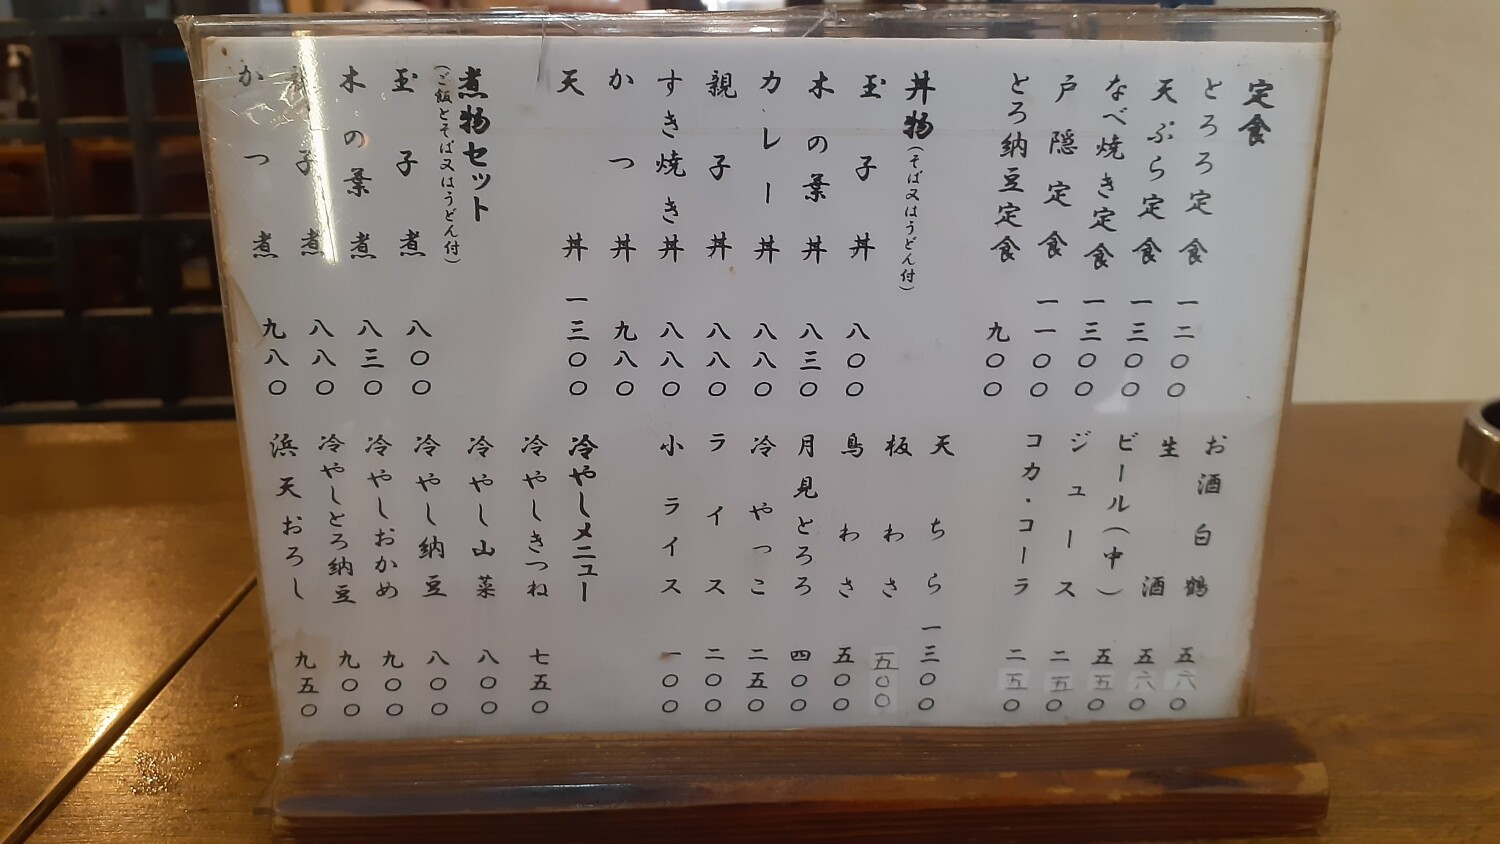 定食
とろろ定食 一二〇〇
天ぷら定食 一三〇〇
なべ焼き定食 一三〇〇
戸隠定食 一一〇〇
とろ納豆定食 九〇〇
丼物(そば又はうどん付)
玉子丼 八〇〇
木の葉丼 八三〇
カレー丼 八八〇
親子丼 八八〇
すき焼き丼 八八〇
かつ丼 九八〇
天丼 一三〇〇
煮物セット
(ご飯とそば又はうどん付)
玉子煮 八〇〇
木の葉煮 八三〇
親子煮 八八〇
かつ煮 九八〇
お酒白鶴 五六〇
生酒 五六〇
ビール(中) 五五〇
ジュース 二五〇
コカ・コーラ 二五〇
天ちら 一三〇〇
板わさ 五〇〇
鳥わさ 五〇〇
月見とろろ 四〇〇
冷やっこ 二五〇
ライス 二〇〇
小ライス 一〇〇
冷やしメニュー
冷やしきつね 七五〇
冷やし山菜 八〇〇
冷やし納豆 八〇〇
冷やしおかめ 九〇〇
冷やしとろ納豆 九〇〇
浜天おろし 九五〇